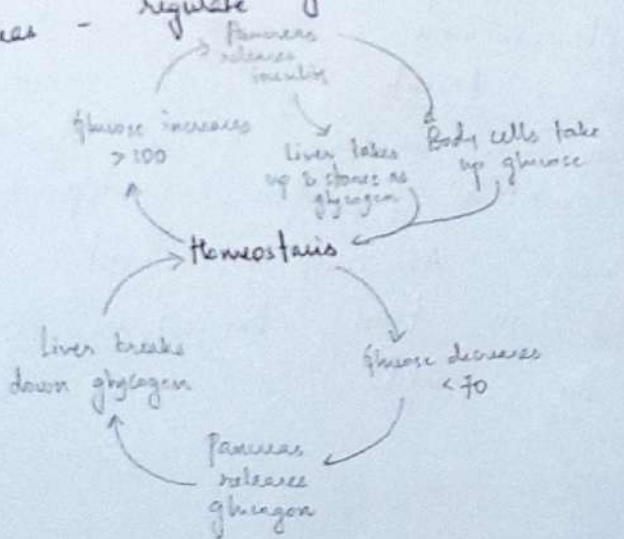 regulate
Pancreas
releases
insulin
Glucose increases
> 100
Liver takes
up & stores as
glycogen
Body cells take
up glucose
Homeostasis
Liver breaks
down glycogen
Glucose decreases
< 70
Pancreas
releases
glucagon